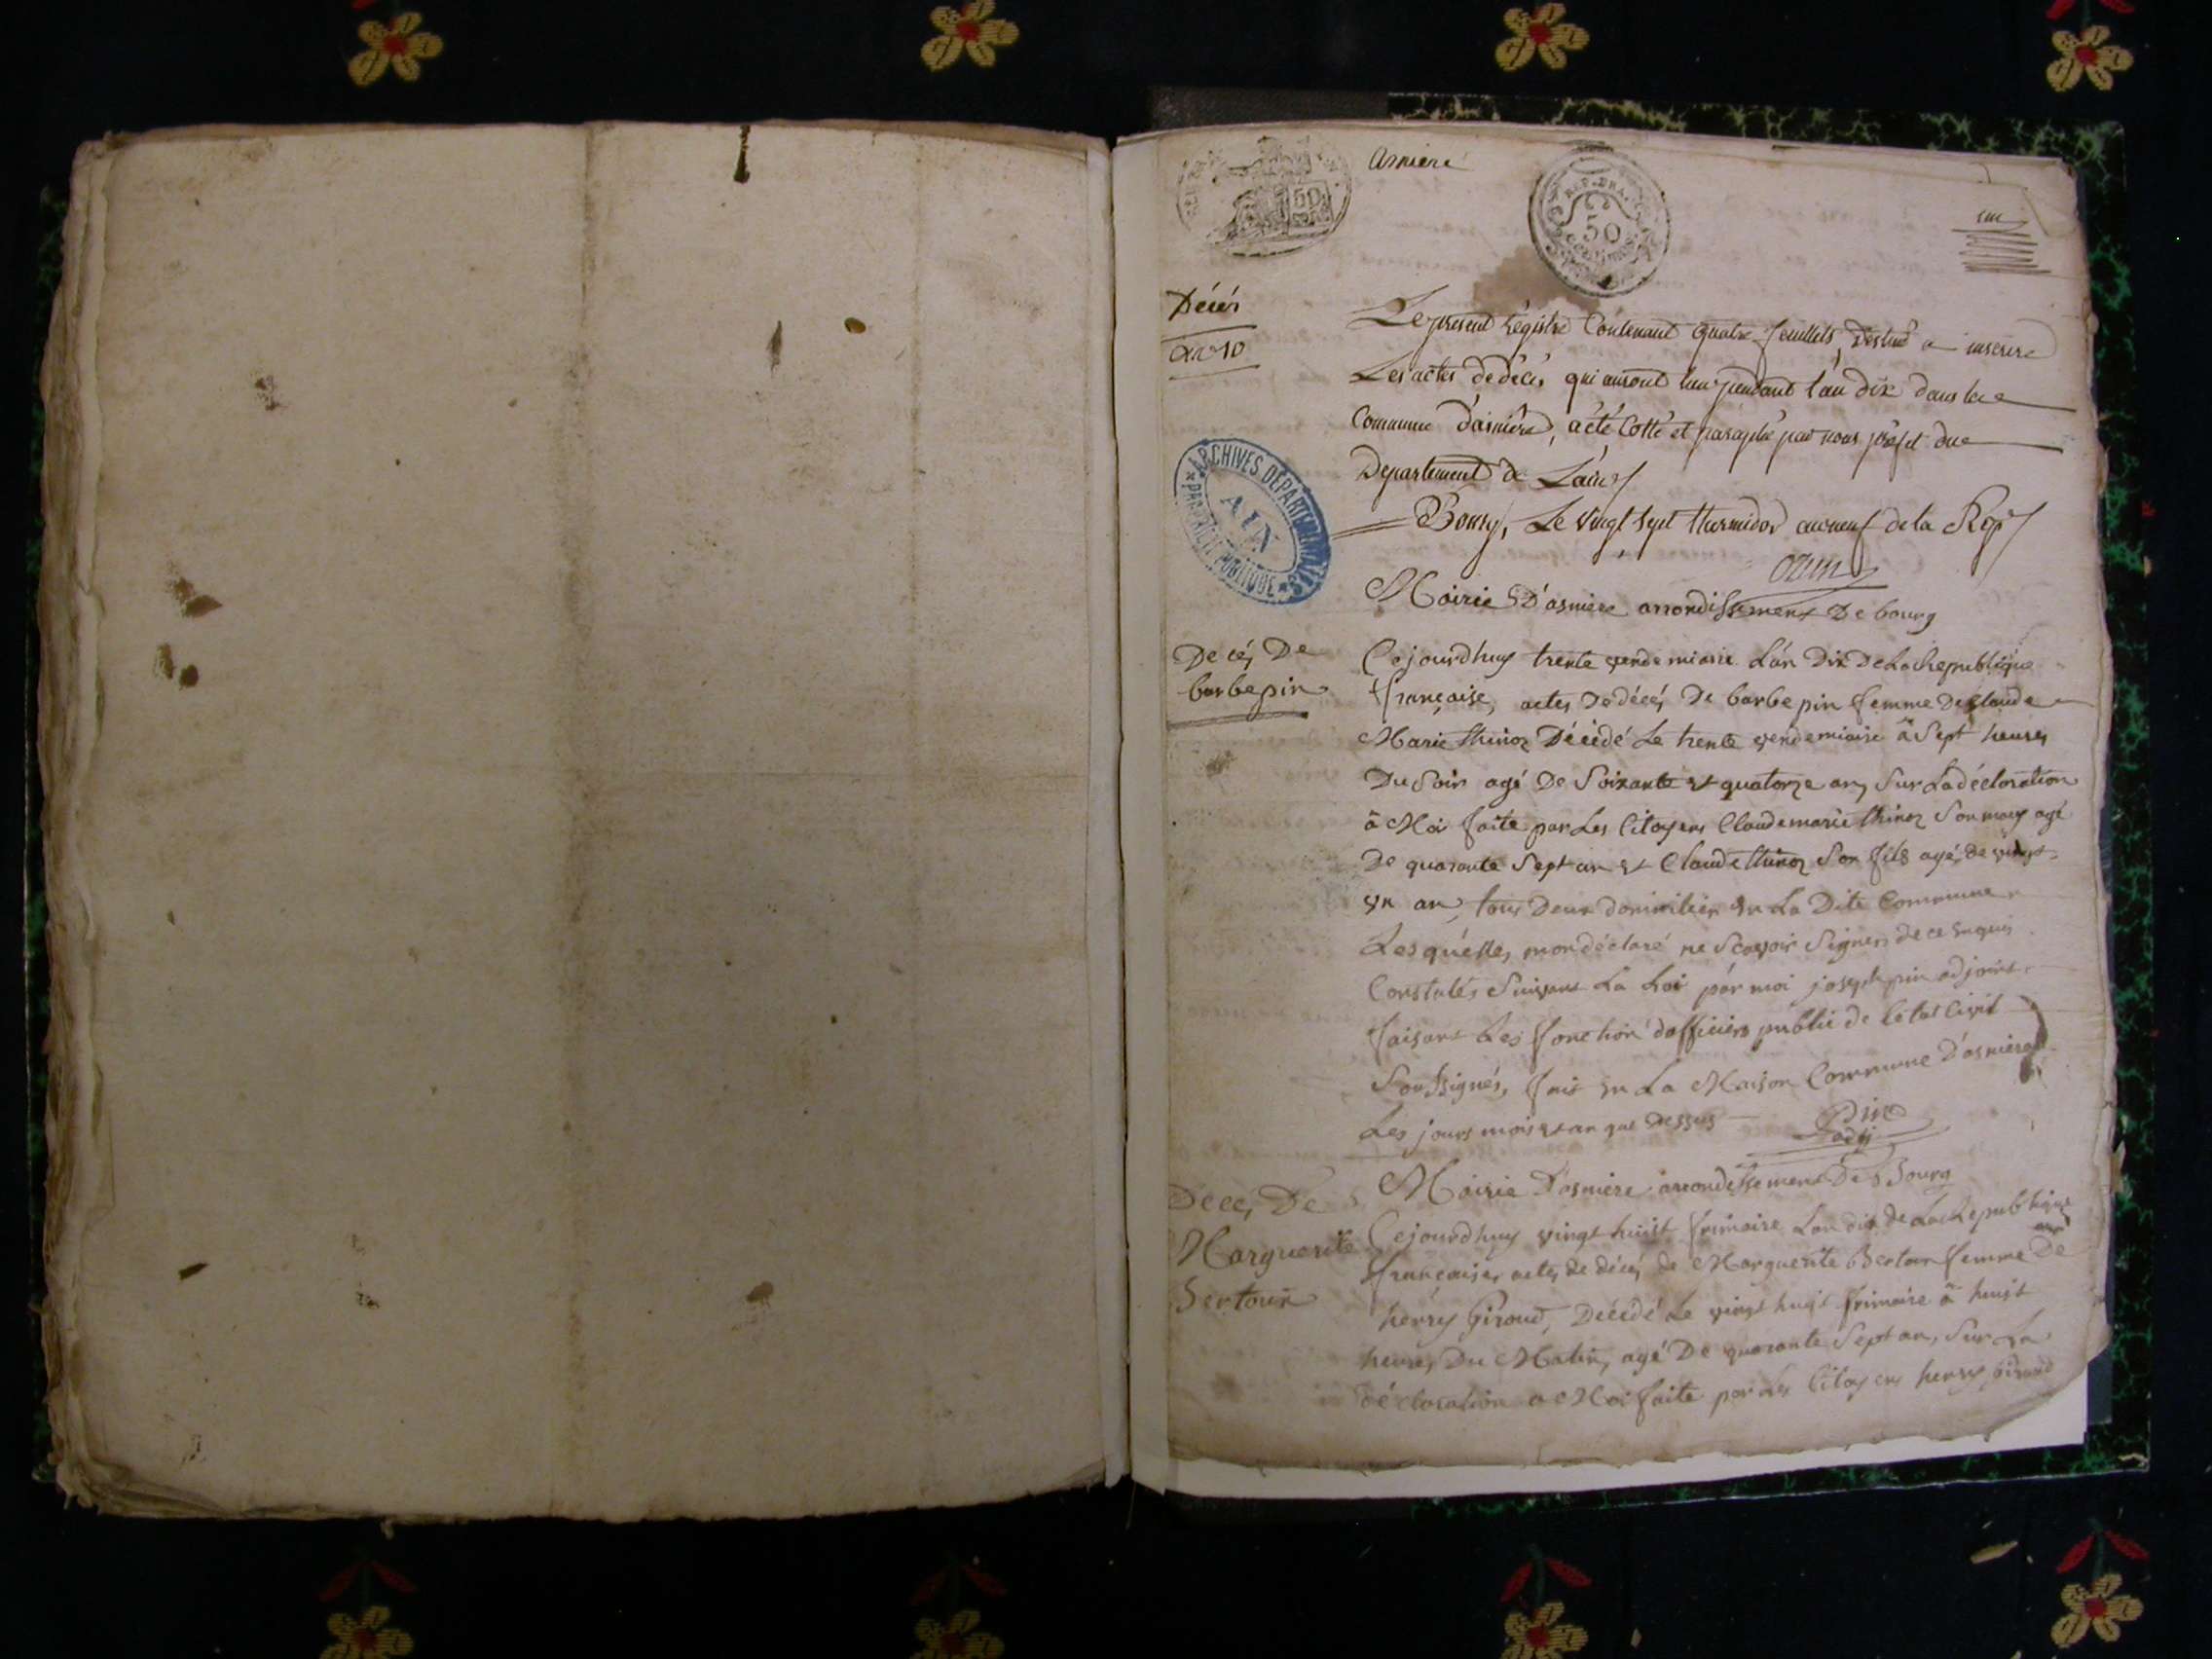 asniere
REP. FRA.
50
centimes
50
un
Décés
an 10
Le present Registre Contenant quatre feuillets, Destiné a inscrire
Les actes de décès qui auront lieu pendant l'an dix dans la
Commune d'asniere, a été Cotté et paraphé par nous préfet du
Departement de L'ain
ARCHIVES DÉPARTEMENTALES
AIN
PROPRIÉTÉ PUBLIQUE
Bourg, Le vingt sept thermidor an neuf de la Rep
ozun
Mairie D'asniere arrondissement De bourg
Decés De
barbe pin
Cejourdhuy trente vendemiaire L'an Dix De La Republique
française, actes De décés De barbe pin femme De Claude
Marie thinon Décédé Le trente vendemiaire â Sept heures
Du Soir agé De Soixante et quatorze ans Sur La déclaration
â Moi faite par Les Citoyens Claude marie thinon Son mary agé
De quarante Sept an et Claude thinon Son fils agé de vingt
un an, tous Deux domiciliés en La Dite Commune
Lesquelles mon déclaré ne Scavoir Signer de ce enquis
Constatés Suivant La Loi par moi joseph pin adjoint
faisant Les fonction d'officiers public de letat Civil
Soussignés, fait en La Maison Commune D'asniere
Les jours mois et an que Dessus
Pin
adj
Mairie D'asniere arrondissement De Bourg
Decés De
Marguerite
Bertour
Cejourdhuy vingt huit frimaire Lan dix de La Republique
française, actes de décés de Marguerite Bertour femme De
henry Giroud, Décédé Le vingt huit frimaire â huit
heures Du Matin, agé De quarante Sept an, Sur La
déclaration a Moi faite par Les Citoyens henry Giroud